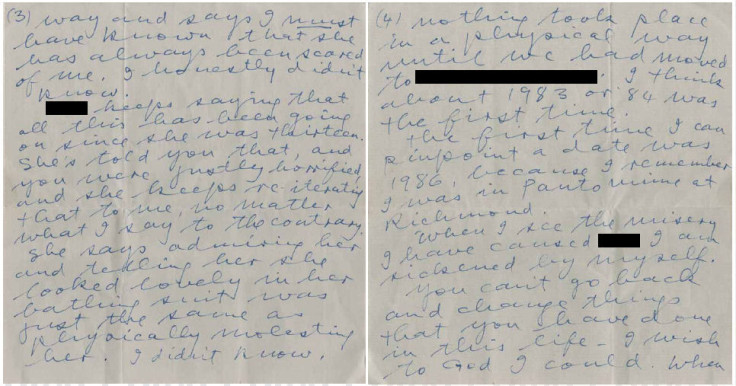 (3) way and says I must
have known that she
has always been scared
of me. I honestly didn't
know.
keeps saying that
all this has been going
on since she was thirteen.
She's told you that, and
you were justly horrified,
and she keeps re-iterating
that to me, no matter
what I say to the contrary.
She says admiring her
and telling her she
looked lovely in her
bathing suit was
just the same as
physically molesting
her. I didn't know.
(4) nothing took place
in a physical way
until we had moved
to . I think
about 1983 or 84 was
the first time.
The first time I can
pinpoint a date was
1986, because I remember
I was in Pantomime at
Richmond.
When I see the misery
I have caused I am
sickened by myself.
You can't go back
and change things
that you have done
in this life - I wish
to God I could. When